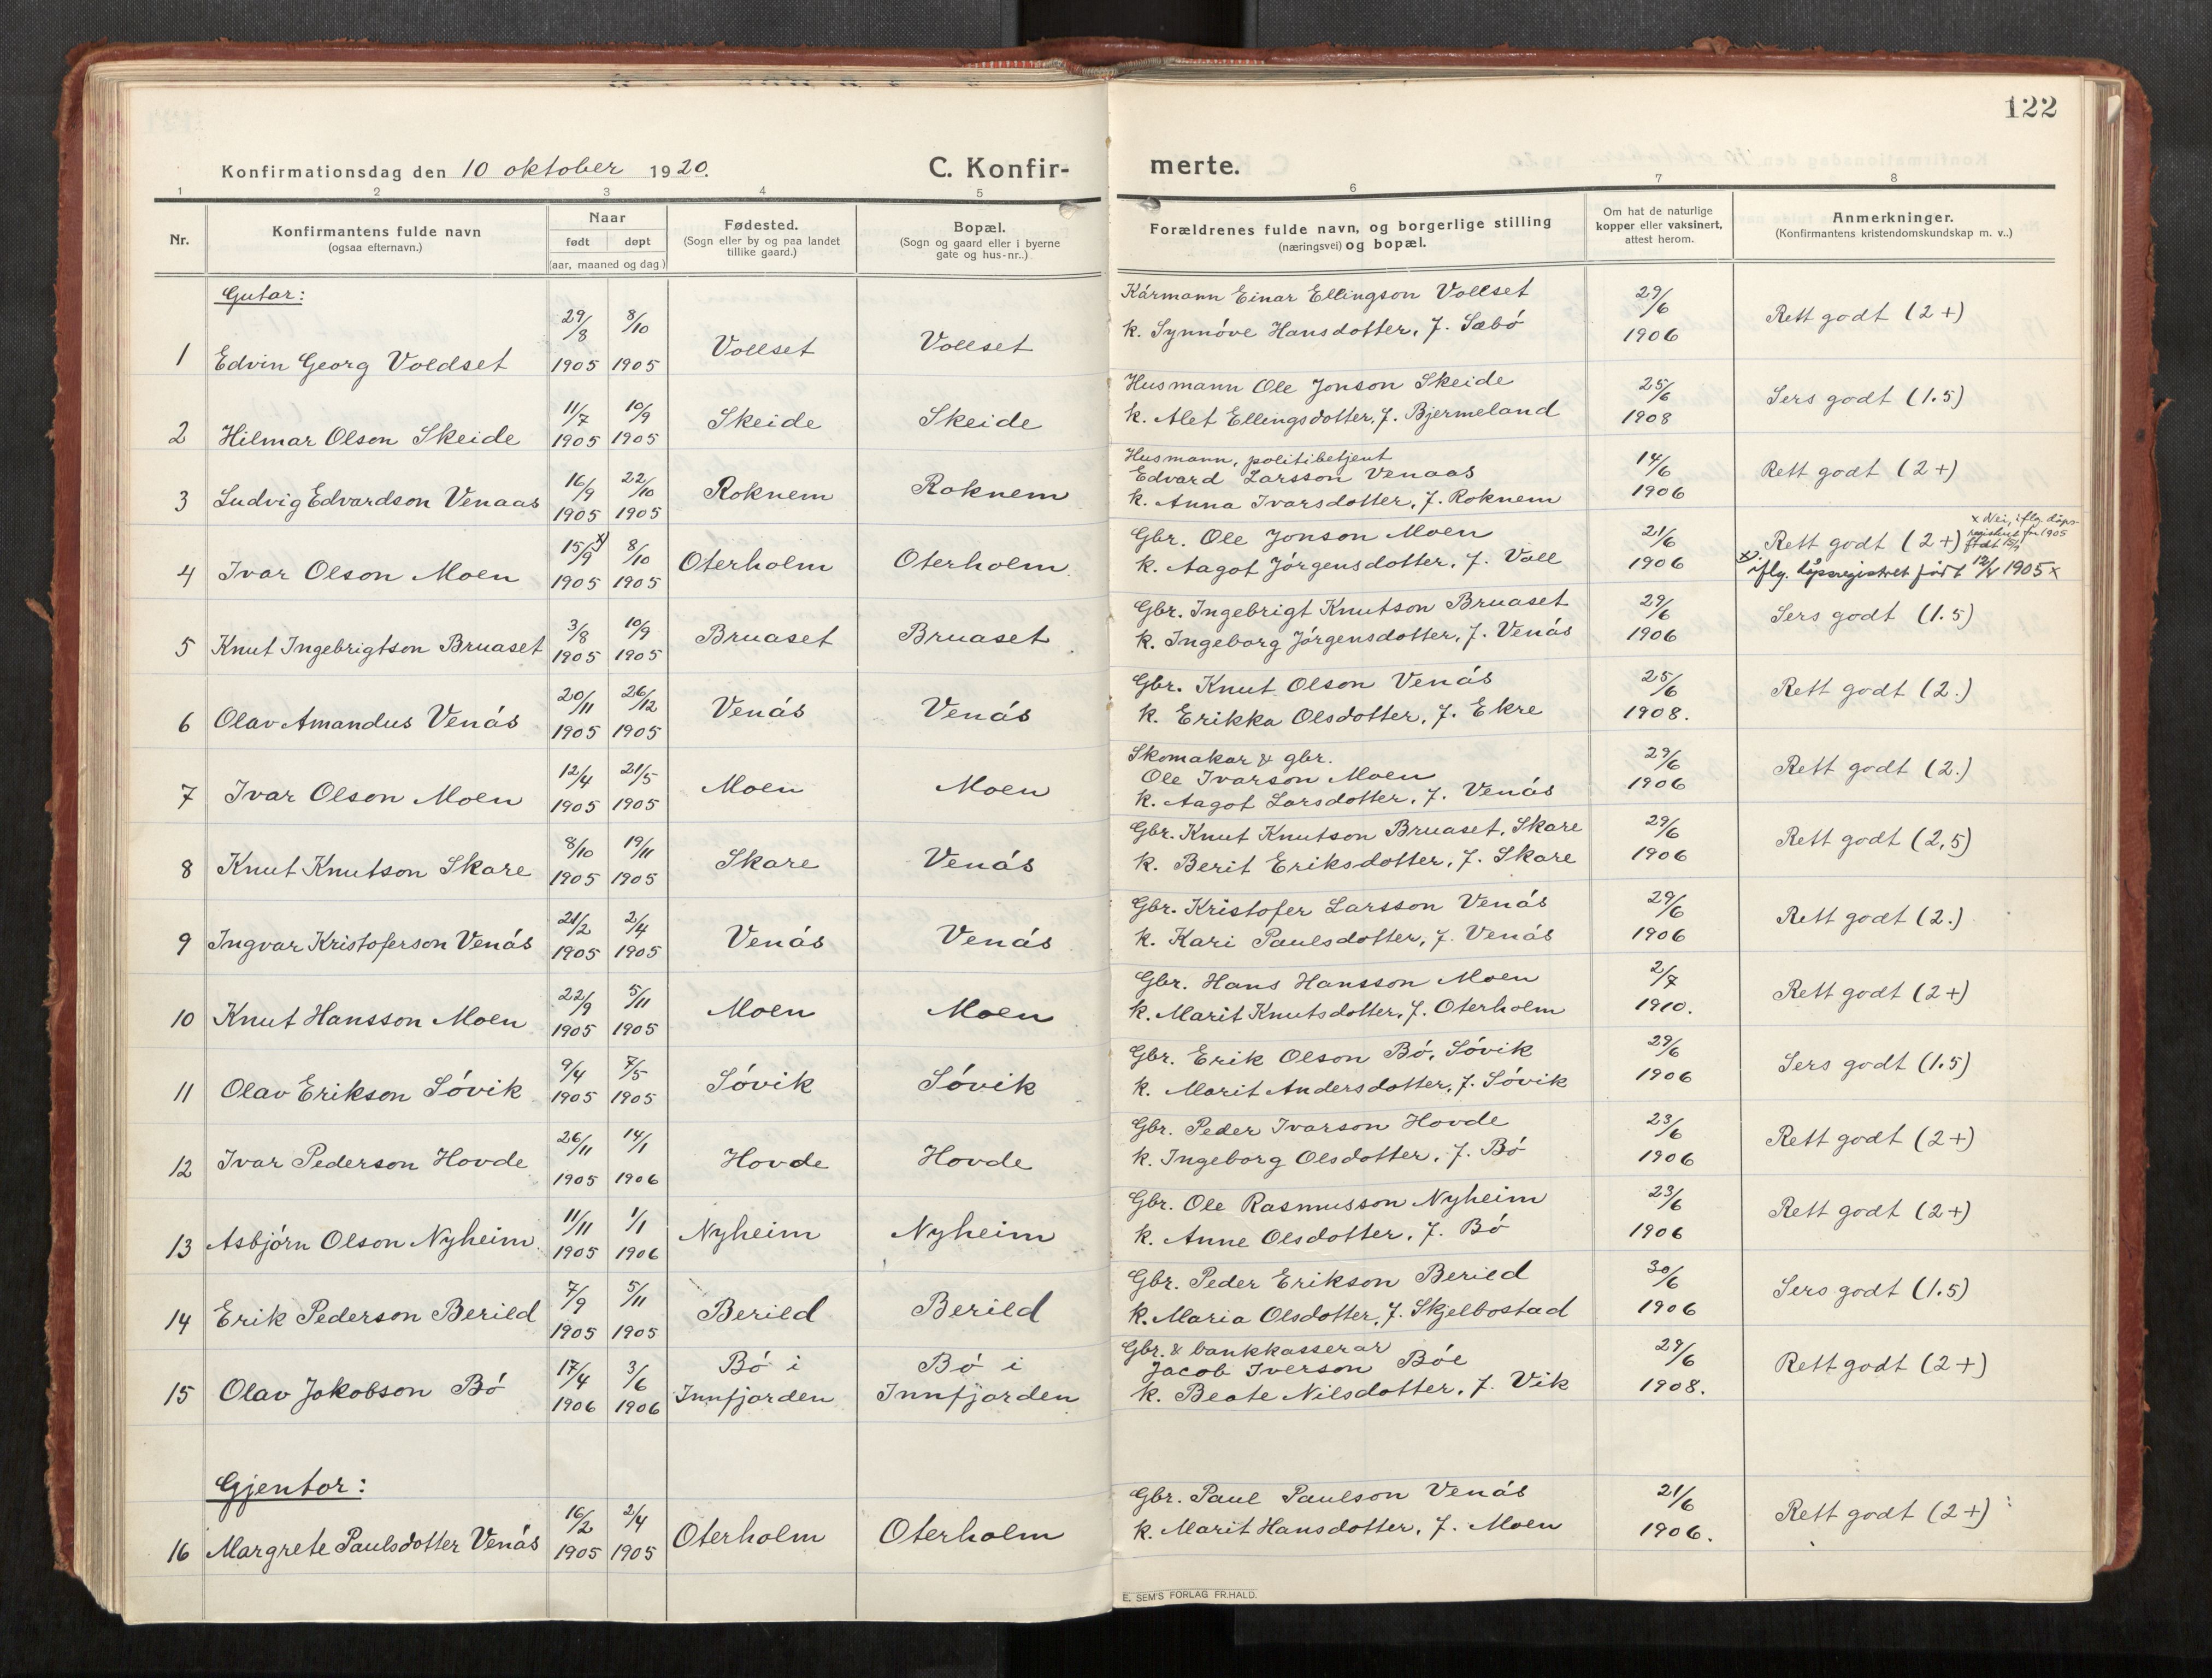 122
Konfirmationsdag den 10 oktober 1920. C. Konfir- merte.
1 2 3 4 5 6 7 8
Nr. Konfirmantens fulde navn (ogsaa efternavn.) Naar født døpt (aar, maaned og dag.) Fødested. (Sogn eller by og paa landet tillike gaard.) Bopæl. (Sogn og gaard eller i byerne gate og hus-nr..) Forældrenes fulde navn, og borgerlige stilling (næringsvei) og bopæl. Om hat de naturlige kopper eller vaksinert, attest herom. Anmerkninger. (Konfirmantens kristendomskundskap m. v..)
Gutar:
1 Edvin Georg Voldset 29/8 1905 8/10 1905 Vollset Vollset Kármann Einar Ellingson Vollset k. Synnóve Hansdotter, f. Sæbó 29/6 1906 Rett godt (2+)
2 Hilmar Olson Skeide 11/7 1905 10/9 1905 Skeide Skeide Husmann Ole Jonson Skeide k. Alet Ellingsdotter, f. Bjermeland 25/6 1908 Sers godt (1.5)
3 Ludvig Edvardson Venaas 16/9 1905 22/10 1905 Roknem Roknem Husmann, politibetjent Edvard Larsson Venaas k. Anna Ivarsdotter, f. Roknem 14/6 1906 Rett godt (2+)
4 Ivar Olson Moen 15/9 x) 1905 8/10 1905 Oterholm Oterholm. Gbr. Ole Jonson Moen k. Aagot Jórgensdotter, f. Voll 21/6 1906 Rett godt (2+) x Nei, iflg. dåps- registret for 1905 født 15/9 x) iflg. dåpsregistret født 12/4 1905 x
5 Knut Ingebrigtson Bruaset 3/8 1905 10/9 1905 Bruaset Bruaset Gbr. Ingebrigt Knutson Bruaset k. Ingeborg Jórgensdotter, f. Venás 29/6 1906 Sers godt (1.5)
6 Olav Amandus Venás 20/11 1905 26/12 1905 Venás Venás Gbr. Knut Olson Venás k. Erikka Olsdotter, f. Ekre 25/6 1908. Rett godt (2.)
7 Ivar Olson Moen 12/4 1905 21/5 1905 Moen Moen Skomakar & gbr. Ole Ivarson Moen k. Aagot Larsdotter, f. Venás 29/6 1906 Rett godt (2.)
8 Knut Knutson Skare 8/10 1905 19/11 1905 Skare Venás Gbr. Knut Knutson Bruaset, Skare k. Berit Eriksdotter, f. Skare 29/6 1906 Rett godt (2,5)
9 Ingvar Kristoferson Venás 21/2 1905 2/4 1905 Venás Venás Gbr. Kristofer Larsson Venás k. Kari Paulsdotter, f. Venás 29/6 1906 Rett godt (2.)
10 Knut Hansson Moen 22/9 1905 5/11 1905 Moen Moen Gbr. Hans Hansson Moen k. Marit Knutsdotter, f. Oterholm 2/7 1910. Rett godt (2+)
11 Olav Erikson Sóvik 9/4 1905 7/5 1905 Sóvik Sóvik Gbr. Erik Olson Bó, Sóvik k. Marit Andersdotter, f. Sóvik 29/6 1906 Sers godt (1.5)
12 Ivar Pederson Hovde 26/11 1905 14/1 1906 Hovde Hovde Gbr. Peder Ivarson Hovde k. Ingeborg Olsdotter, f. Bó 23/6 1906 Rett godt (2+)
13 Asbjórn Olson Nyheim 11/11 1905 1/1 1906 Nyheim Nyheim Gbr. Ole Rasmusson Nyheim k. Anne Olsdotter, f. Bó 23/6 1906 Rett godt (2+)
14 Erik Pederson Berild 7/9 1905 5/11 1905 Berild Berild Gbr. Peder Erikson Berild k. Maria Olsdotter, f. Skjelbostad 30/6 1906 Sers godt (1.5)
15 Olav Jakobson Bó 17/4 1906 3/6 1906 Bó i Innfjorden Bó i Innfjorden Gbr. & bankkasserar Jacob Iverson Bóe k. Beate Nilsdotter, f. Vik 29/6 1908. Rett godt (2+)
Gjentor:
16 Margrete Paulsdotter Venás 16/2 1905 2/4 1905 Oterholm Oterholm Gbr. Paul Paulson Venás k. Marit Hansdotter, f. Moen 21/6 1906. Rett godt (2+)
E. SEM'S FORLAG FR.HALD.